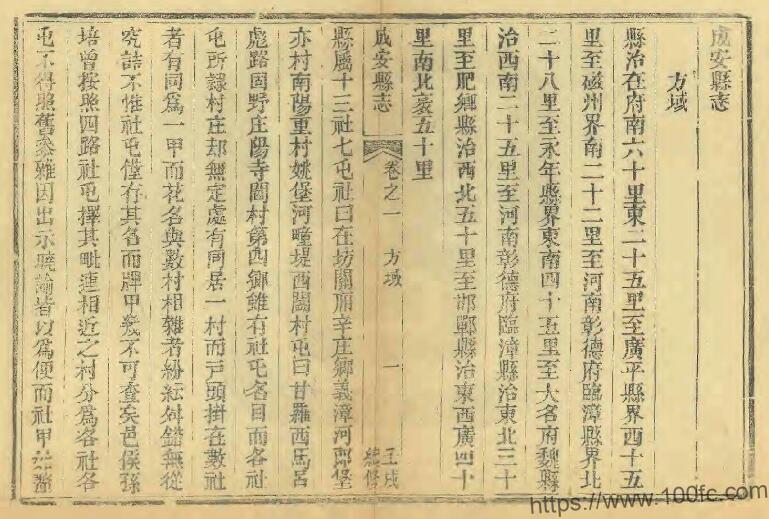 成安縣志
方域
縣治在府南六十里東二十五里至廣平縣界西十五
里至磁州界南二十二里至河南彰德府臨漳縣界北
二十八里至永年縣界東南四十五里至大名府魏縣
治西南二十五里至河南彰德府臨漳縣治東北三十
里至肥鄉縣治西北五十里至邯鄲縣治東西廣四十
里南北袤五十里
成安縣志 卷之一 方域 一 壬戌續修
縣屬十三社七屯社曰在坊關廂辛庄鄉義漳河郎堡
亦村南陽重村姚堡河疃堤西閻村屯曰甘羅西馬呂
彪路固野庄陽寺閻村第四鄉雖有社屯名目而各社
屯所隷村庄却無定處有同居一村而戸頭掛在數社
者有同爲一甲而花名與數村相雜者紛紜舛錯無從
究詰不惟社屯僅存其名而牌甲幾不可查矣邑侯孫
培曾按照四路社屯擇其毗連相近之村分爲各社各
屯不得照舊參雜因出示曉諭皆以爲便而社甲
https://www.100fc.com